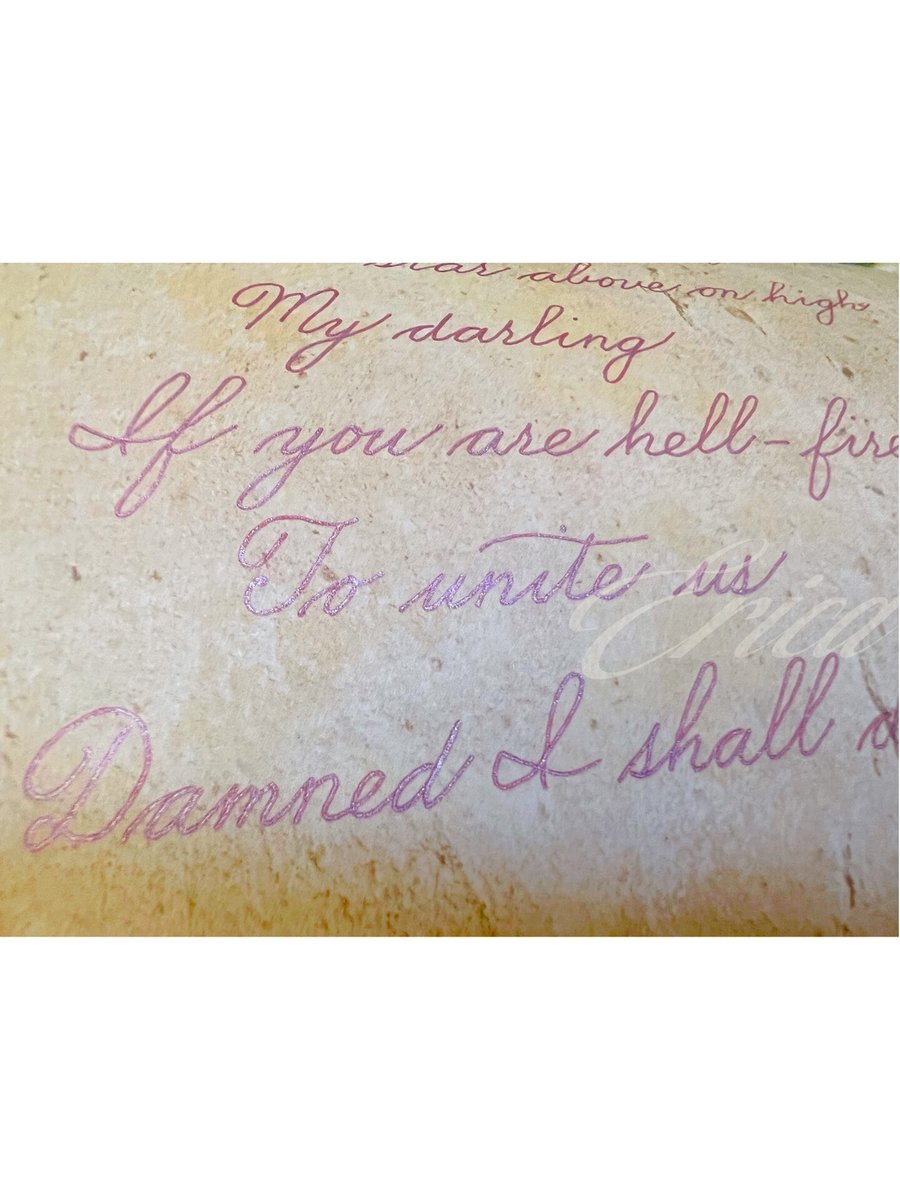 star above on high
My darling
If you are hell-fire
To unite us
Erica
Damned I shall